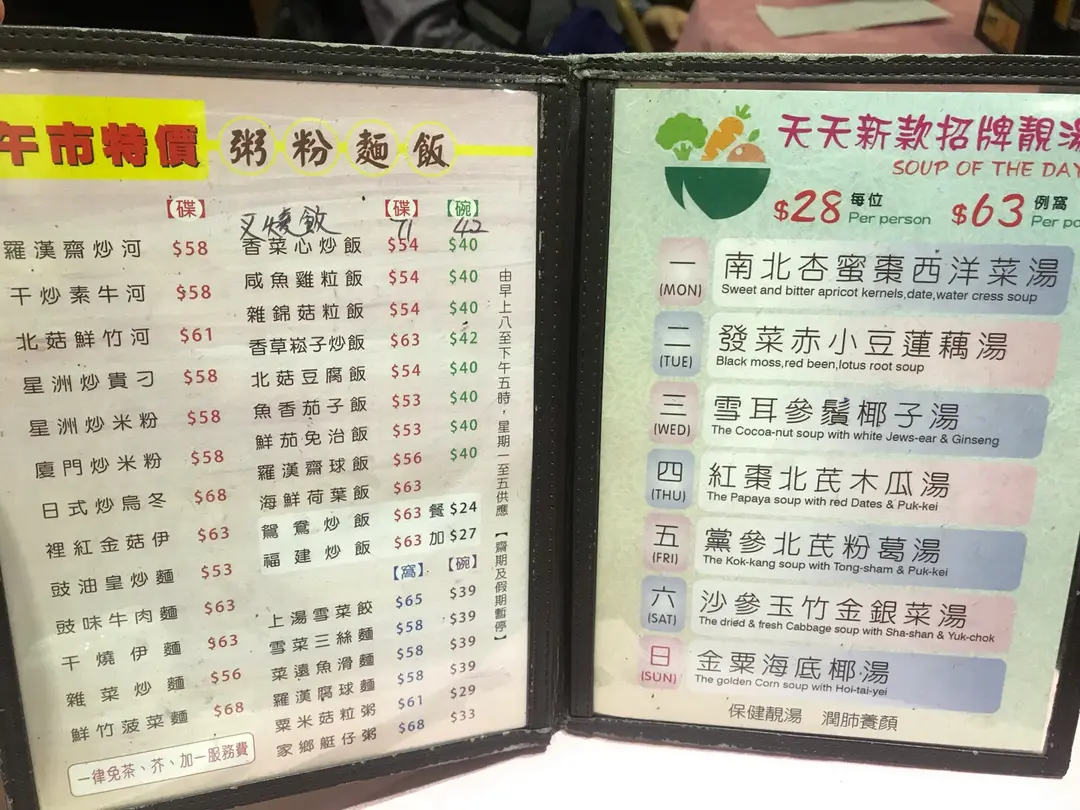 午市特價 粥粉麵飯
【碟】
羅漢齋炒河 $58
干炒素牛河 $58
北菇鮮竹河 $61
星洲炒貴刁 $58
星洲炒米粉 $58
廈門炒米粉 $58
日式炒烏冬 $68
裡紅金菇伊 $63
豉油皇炒麵 $53
豉味牛肉麵 $63
干燒伊麵 $63
雜菜炒麵 $56
鮮竹菠菜麵 $68
一律免茶、芥、加一服務費
【碟】 【碗】
叉燒飯 71 42
香菜心炒飯 $54 $40
咸魚雞粒飯 $54 $40
雜錦菇粒飯 $54 $40
香草崧子炒飯 $63 $42
北菇豆腐飯 $54 $40
魚香茄子飯 $53 $40
鮮茄免治飯 $53 $40
羅漢齋球飯 $56 $40
海鮮荷葉飯 $63
鴛鴦炒飯 $63 餐 $24
福建炒飯 $63 加 $27
【窩】 【碗】
上湯雪菜餃 $65 $39
雪菜三絲麵 $58 $39
菜遠魚滑麵 $58 $39
羅漢腐球麵 $58 $39
粟米菇粒粥 $61 $29
家鄉艇仔粥 $68 $33
由早上八至下午五時，星期一至五供應
【齋期及假期暫停】
天天新款招牌靚湯
SOUP OF THE DAY
$28 每位 Per person $63 例窩 Per
一 (MON) 南北杏蜜棗西洋菜湯
Sweet and bitter apricot kernels,date,water cress soup
二 (TUE) 發菜赤小豆蓮藕湯
Black moss,red been,lotus root soup
三 (WED) 雪耳參鬚椰子湯
The Cocoa-nut soup with white Jews-ear & Ginseng
四 (THU) 紅棗北芪木瓜湯
The Papaya soup with red Dates & Puk-kei
五 (FRI) 黨參北芪粉葛湯
The Kok-kang soup with Tong-sham & Puk-kei
六 (SAT) 沙參玉竹金銀菜湯
The dried & fresh Cabbage soup with Sha-shan & Yuk-chok
日 (SUN) 金粟海底椰湯
The golden Corn soup with Hoi-tai-yei
保健靚湯 潤肺養顏